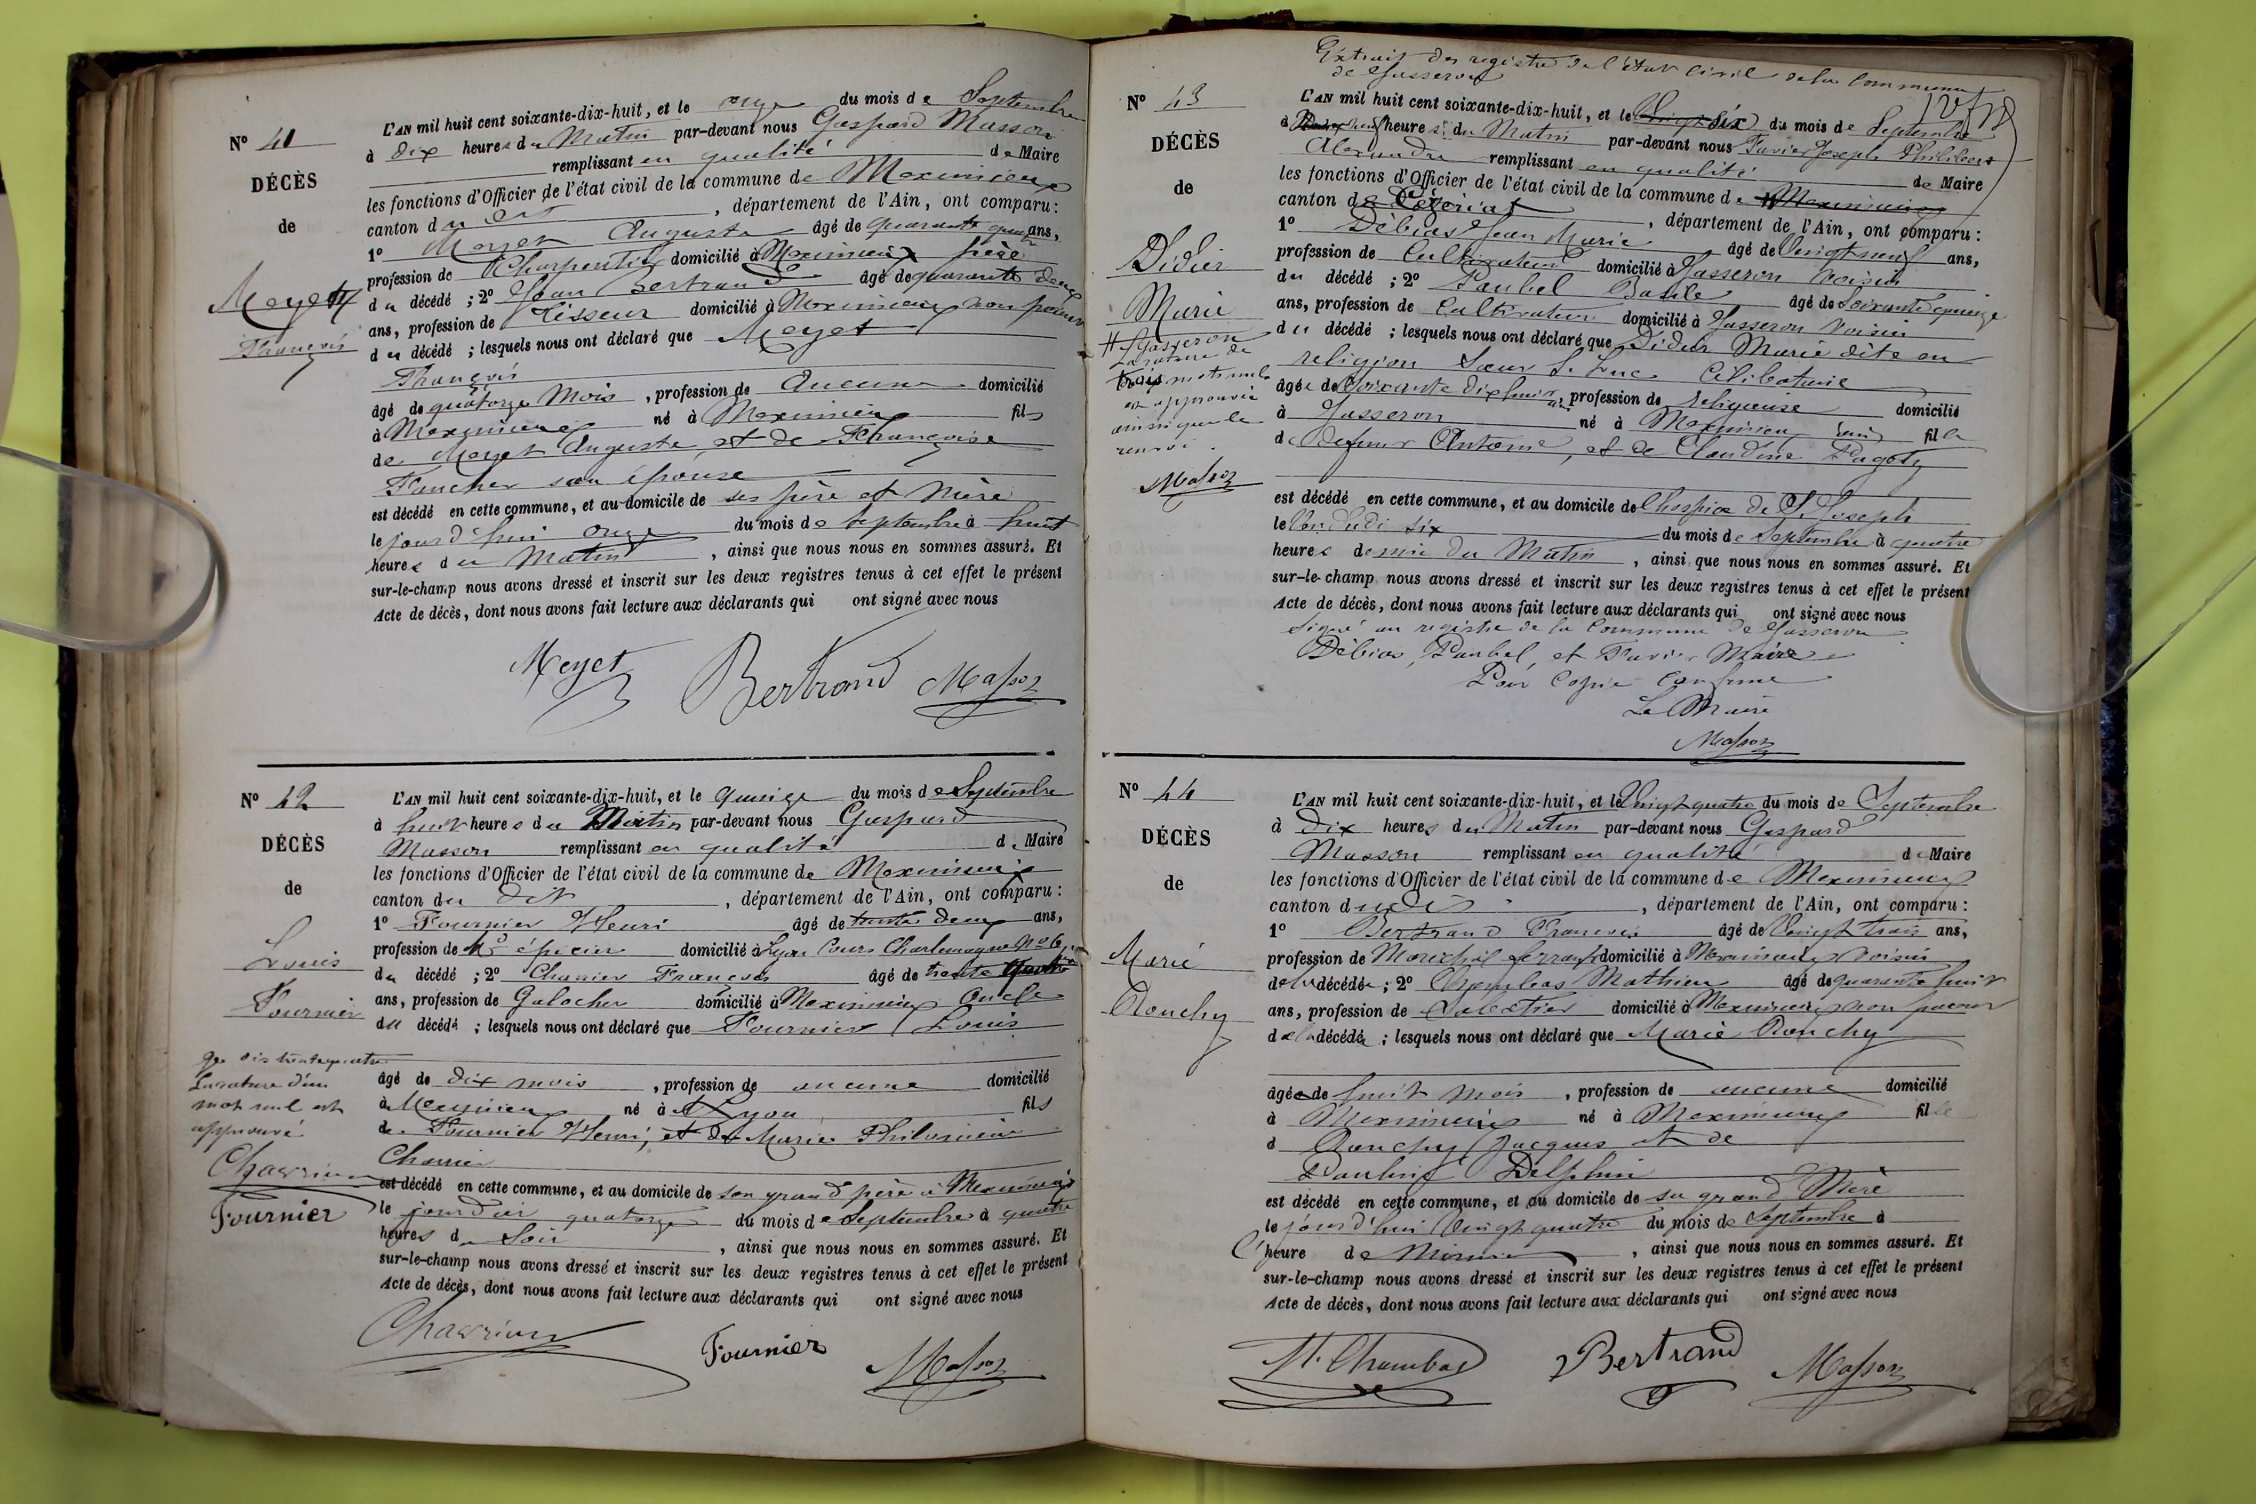 N° 41
DÉCÈS
de
Meyet
François
L'AN mil huit cent soixante-dix-huit, et le onze du mois de Septembre
à dix heures du Matin par-devant nous Gaspard Masson
remplissant en qualité de Maire
les fonctions d'Officier de l'état civil de la commune de Meximieux
canton du dit, département de l'Ain, ont comparu :
1° Meyet Auguste âgé de quarante ans,
profession de Charpentier domicilié à Meximieux père
du décédé ; 2° Jean Bertrand âgé de quarante deux
ans, profession de Tisseur domicilié à Meximieux non parent
du décédé ; lesquels nous ont déclaré que Meyet
François
âgé de quatorze Mois, profession de Aucune domicilié
à Meximieux né à Meximieux fils
de Meyet Auguste et de Françoise
Faucher son épouse
est décédé en cette commune, et au domicile de ses père et Mère
le jourd'hui onze du mois de Septembre à huit
heures du Matin, ainsi que nous nous en sommes assuré. Et
sur-le-champ nous avons dressé et inscrit sur les deux registres tenus à cet effet le présent
Acte de décès, dont nous avons fait lecture aux déclarants qui ont signé avec nous
Meyet Bertrand Masson
N° 42
DÉCÈS
de
Louis
Fournier
L'AN mil huit cent soixante-dix-huit, et le quinze du mois de Septembre
à huit heures du Matin par-devant nous Gaspard
Masson remplissant en qualité de Maire
les fonctions d'Officier de l'état civil de la commune de Meximieux
canton du dit, département de l'Ain, ont comparu :
1° Fournier Henri âgé de trente deux ans,
profession de Md épicier domicilié à Lyon Cours Charlemagne N° 6
du décédé ; 2° Charrier François âgé de trente quatre
ans, profession de Galocher domicilié à Meximieux Oncle
du décédé ; lesquels nous ont déclaré que Fournier Louis
trente quatre
La rature d'un
mot nul est
approuvé
Fournier
âgé de dix mois, profession de aucune domicilié
à Meximieux né à Lyon fils
de Fournier Henri, et de Marie Philomène
Charrier
est décédé en cette commune, et au domicile de son grand père à Meximieux
le jour d'hier quatorze du mois de Septembre à quatre
heures du Soir, ainsi que nous nous en sommes assuré. Et
sur-le-champ nous avons dressé et inscrit sur les deux registres tenus à cet effet le présent
Acte de décès, dont nous avons fait lecture aux déclarants qui ont signé avec nous
Fournier Masson
Extrait des registre de l'état civil de la Commune
de Jasseron
N° 43
DÉCÈS
de
Didier
Marie
# Jasseron
La rature de
trois mots nuls
est approuvée
ainsi que le
renvoi.
Masson
L'AN mil huit cent soixante-dix-huit, et le Vingt Six du mois de Septembre
à heures du Matin par-devant nous Favier Joseph Philibert
Alexandre remplissant en qualité de Maire
les fonctions d'Officier de l'état civil de la commune de # Meximieux
canton de Ceyzériat, département de l'Ain, ont comparu :
1° Débias Jean Marie âgé de Vingt neuf ans,
profession de Cultivateur domicilié à Jasseron Voisin
du décédé ; 2° Paubel Basile âgé de Soixante quinze
ans, profession de Cultivateur domicilié à Jasseron Voisin
du décédé ; lesquels nous ont déclaré que Didier Marie dite en
religion Sœur St Luc Célibataire
âgée de Soixante dix huit ans, profession de religieuse domicilié
à Jasseron né à Meximieux (ain) fille
de defunt Antoine, et de Claudine Pagoty
est décédé en cette commune, et au domicile de l'hospice de St Joseph
le Vendredi six du mois de Septembre à quatre
heures demie du Matin, ainsi que nous nous en sommes assuré. Et
sur-le-champ nous avons dressé et inscrit sur les deux registres tenus à cet effet le présent
Acte de décès, dont nous avons fait lecture aux déclarants qui ont signé avec nous
Signé au registre de la Commune de Jasseron
Débias, Paubel, et Favier Maire
Pour Copie Conforme
Le Maire
Masson
N° 44
DÉCÈS
de
Marie
Ronchy
L'AN mil huit cent soixante-dix-huit, et le Vingt quatre du mois de Septembre
à Dix heures du Matin par-devant nous Gaspard
Masson remplissant en qualité de Maire
les fonctions d'Officier de l'état civil de la commune de Meximieux
canton du dit, département de l'Ain, ont comparu :
1° Bertrand François âgé de Vingt trois ans,
profession de Maréchal ferrant domicilié à Meximieux Voisin
de la décédée ; 2° Chambas Mathieu âgé de quarante huit
ans, profession de domicilié à Meximieux non parent
de la décédée ; lesquels nous ont déclaré que Marie Ronchy
âgée de huit mois, profession de aucune domicilié
à Meximieux né à Meximieux fille
d Ronchy Jacques et de
Delphine
est décédé en cette commune, et au domicile de sa grand Mère
le jourd'hui Vingt quatre du mois de Septembre à
heure de Minuit, ainsi que nous nous en sommes assuré. Et
sur-le-champ nous avons dressé et inscrit sur les deux registres tenus à cet effet le présent
Acte de décès, dont nous avons fait lecture aux déclarants qui ont signé avec nous
M. Chambas Bertrand Masson